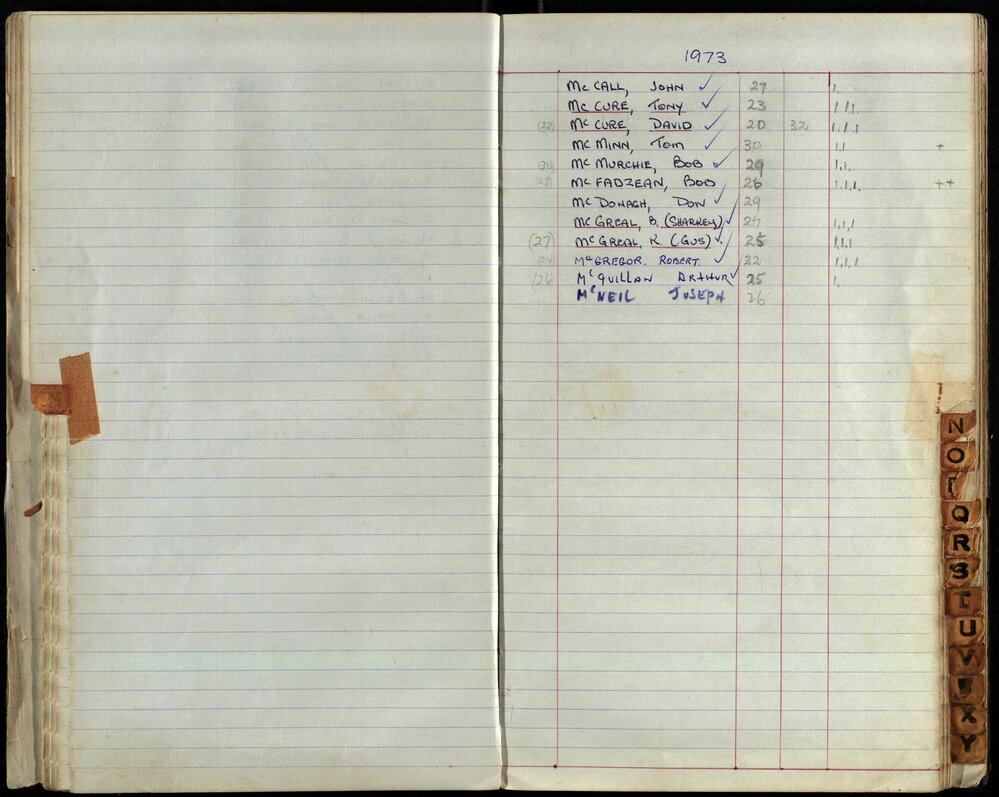 1973
McCALL, JOHN ✓ 27 1.
McCURE, TONY ✓ 23 1.1.1.
(22) McCURE, DAVID ✓ 20 32. 1.1.1
McMINN, TOM ✓ 30 1.1 +
(30) McMURCHIE, BOB ✓ 29 1.1.
(28) McFADZEAN, BOB ✓ 26 1.1.1. ++
McDONAGH, DON ✓ 29
McGREAL, B. (SHARKEY) ✓ 27 1,1,1
(27) McGREAL, K. (GUS) ✓ 25 1,1.1
(24) McGREGOR. ROBERT. ✓ 22 1,1,1
(26) McQUILLAN ARTHUR ✓ 25 1.
McNEIL JOSEPH 26
N
O
P
Q
R
S
T
U
V
X
Y